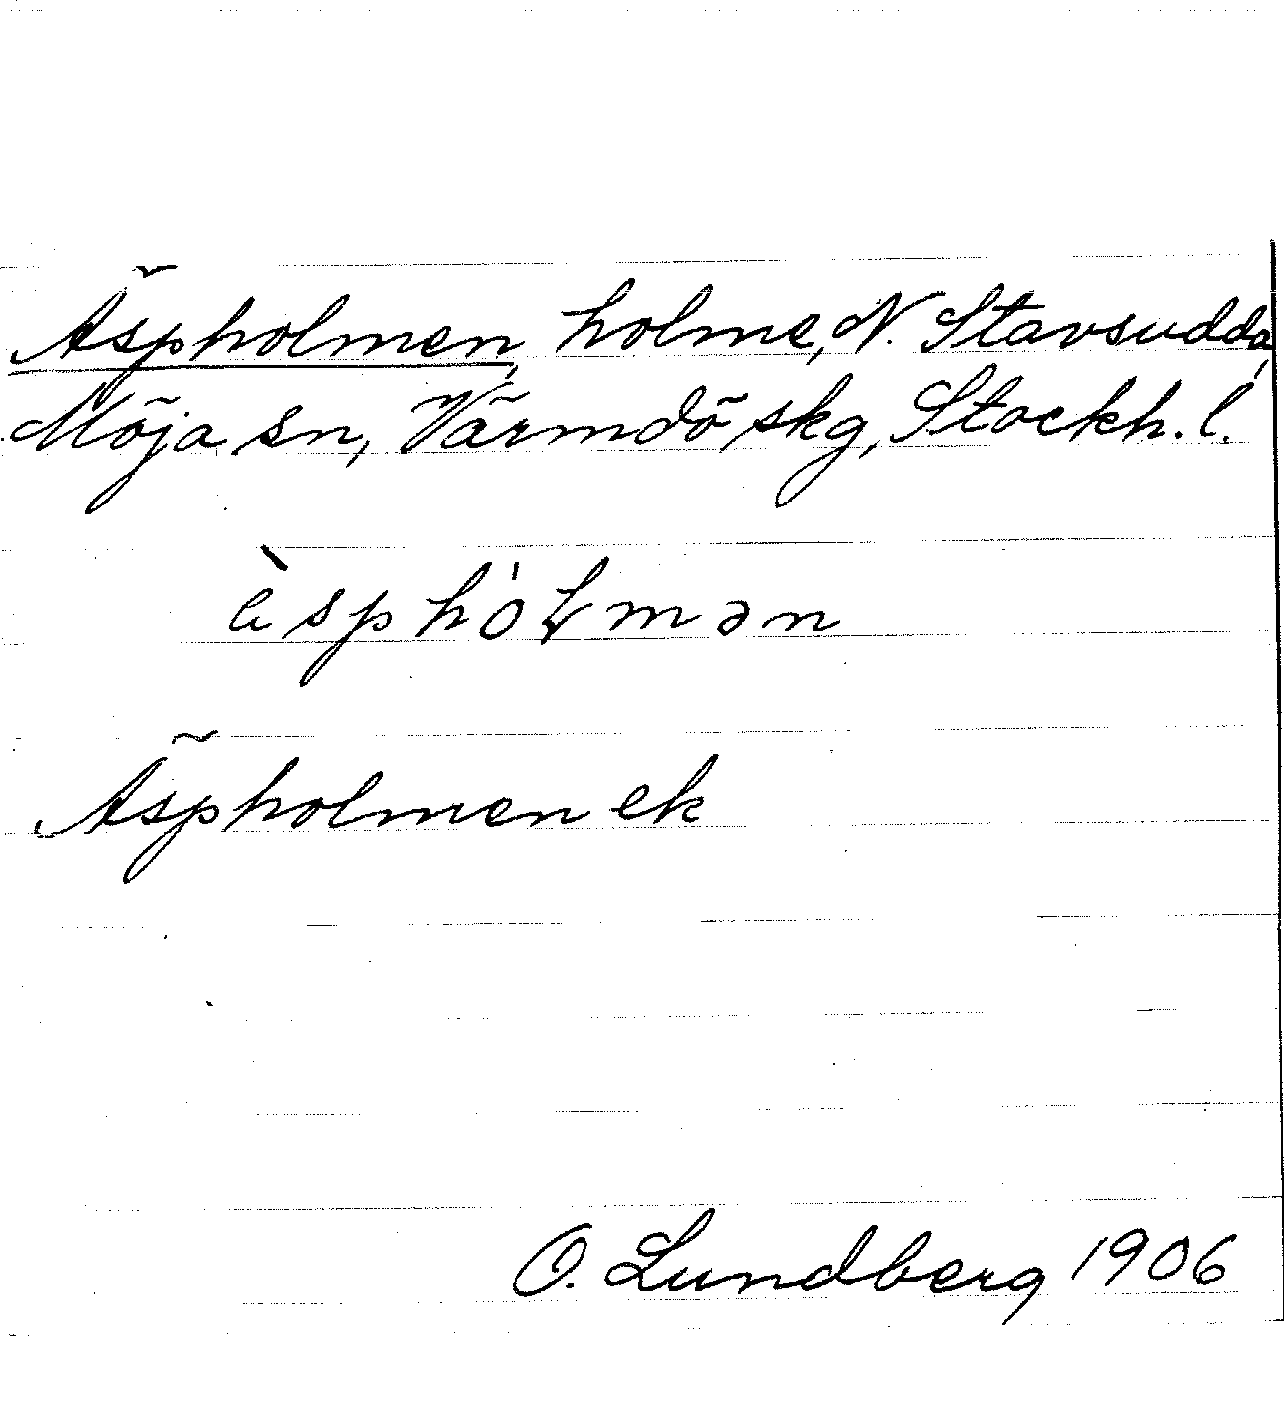 Äspholmen, holme, N. Stavsudda,
Möja sn, Värmdö skg, Stockh. l.
Äspholmen ek
O. Lundberg 1906